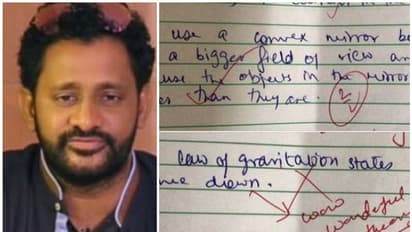 use a convex mirror be
a bigger field of view an
use the objects in the mirror
than they are.
law of gravitation states
down.
wow
wonderful